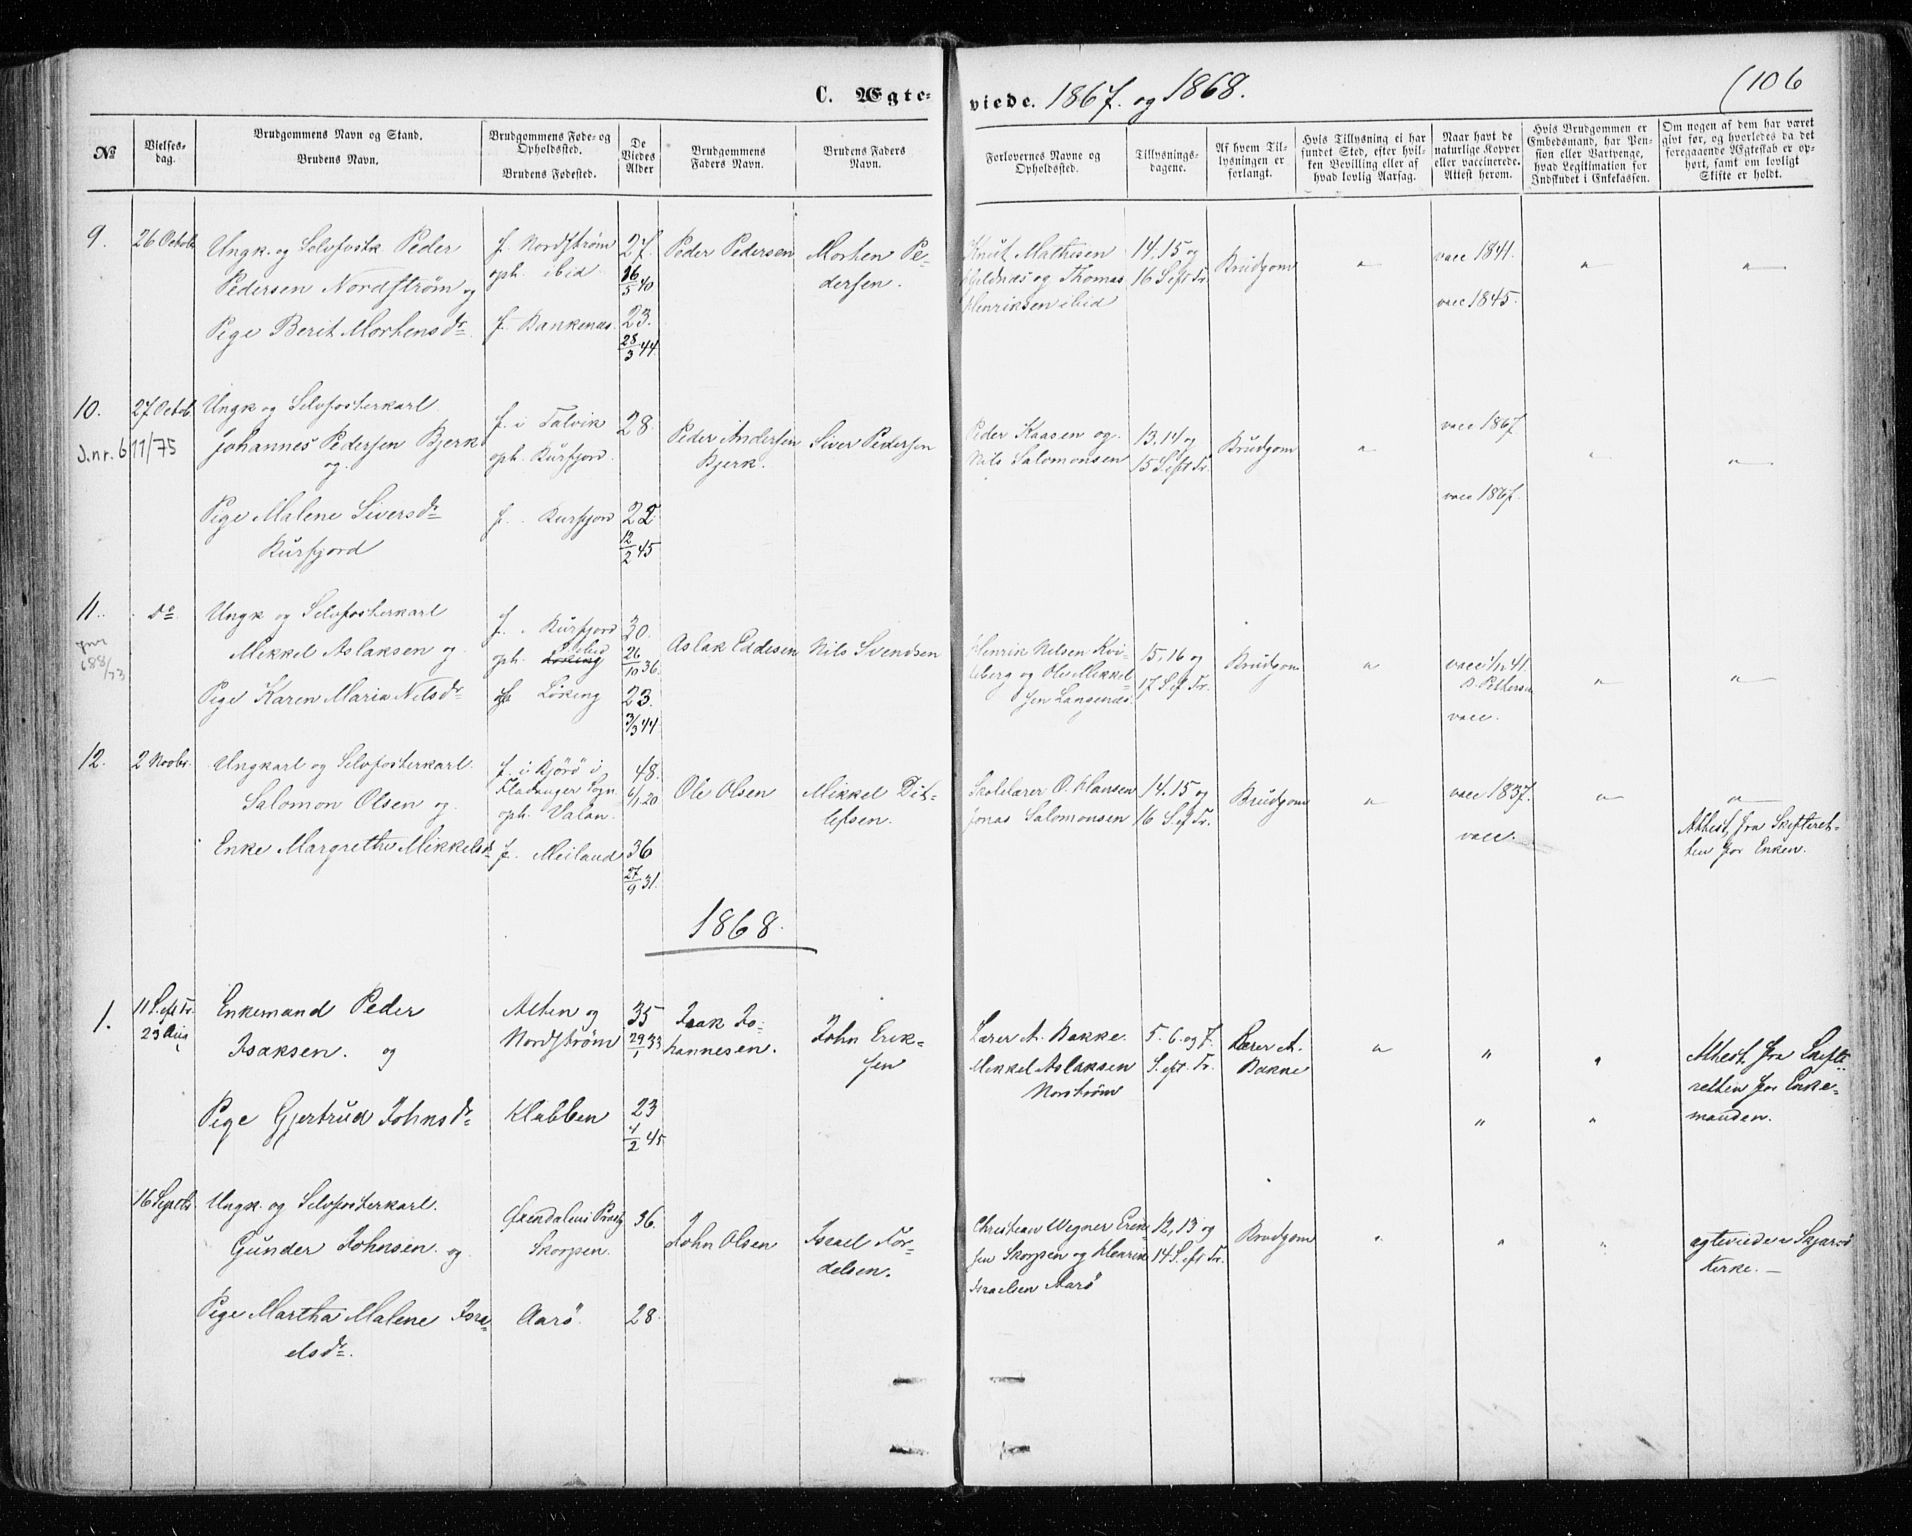 C. Ægte-
viede. 1867. og 1868.
(106
№
Vielses-
dag.
Brudgommens Navn og Stand.
Brudens Navn.
Brudgommens Føde- og
Opholdssted.
Brudens Fødested.
De
Viedes
Alder
Brudgommens
Faders Navn.
Brudens Faders
Navn.
Forlovernes Navne og
Opholdssted.
Tillysnings-
dagene.
Af hvem Til-
lysningen er
forlangt.
Hvis Tillysning ei har
fundet Sted, efter hvil-
ken Bevilling eller af
hvad lovlig Aarsag.
Naar havt de
naturlige Kopper
eller vaccinerede.
Attest herom.
Hvis Brudgommen er
Embedsmand, har Pen-
sion eller Vartpenge,
hvad Legitimation for
Indskudet i Enkekassen.
Om nogen af dem har været
gift før, og hvorledes da det
foregaaende Ægteskab er op-
hørt, samt om lovligt
Skifte er holdt.
9.
26 Octob
Ungk. og Selvfostk Peder
Pedersen Nordstrøm og
Pige Berit Mortensdr
f. Nordstrøm
oph. ibid.
f. Bankenæs.
27.
16/5 40
23.
28/3 44
Peder Pedersen
Morten Pe-
dersen.
Knut Mathisen
Gildnæs og Thomas
Henriksen ibid
14. 15 og
16 S eft Tr.
Brudgom
"
vacc 1841.
vacc 1845.
"
"
10.
J.nr. 611/75
27 Octob
Ungk og Selvfosterkarl
Johannes Pedersen Bjerk
og
Pige Malene Siversdr
Burfjord
f. i Talvik
oph. Burfjord.
f. . Burfjord
28
22
12/2 45
Peder Andersen
Bjerk.
Siver Pedersen
Peder Kaasen og
Nils Salomonsen
13. 14 og
15 S eft Tr.
Brudgom
"
vacc 1867
vacc 1867.
"
"
11.
jnr
688/73
do
Ungk og Selvfosterkarl
Mikkel Aslaksen og
Pige Karen Maria Nilsdr
f. . Burfjord
oph. Løking ibid
f. Løking
30.
26/10 36.
23.
3/3 44
Aslak Eddesen
Nils Svendsen
Henrik Nilsen Kvi-
teberg og Ole Mikkel-
sen Langenæs.
15, 16 og
17 S eft Tr.
Brudgom
"
vacc 1/11 41
vacc.
"
"
12.
2 Novbr.
Ungkarl og Selvfosterkarl
Salomon Olsen og
Enke Margrethe Mikkelsdr
f. i Bjørø i
Fladanger Sogn
oph. Valan.
f. Meiland
48.
6/1 20
36
27/9 31.
Ole Olsen
Mikkel Dit-
lefsen.
Skolelærer O. Hansen
Jonas Salomonsen
14. 15 og
16 S. eft Tr.
Brudgom
"
vacc 1837.
vacc.
"
"
Attest fra Skifteret-
ten for Enken.
1868.
1.
11 S. eft Tr.
23 Aug
Enkemand Peder
Isaksen. og
Pige Gjertrud Johnsdr
Alten og
Nordstrøm
Klubben
35
29/1 33
23
4/2 45
Isak Jo-
hannesen.
John Erik-
sen
Lærer A. Bakke.
Mikkel Aslaksen
Norstrøm
5. 6. og 7.
S. eft. Tr.
Lærer A.
Bakke
"
"
"
"
"
Attest fra Skifte-
retten for Enke-
manden.
16 Septbr.
Ungk. og Selvfosterkarl.
Gunder Johnsen. og
Pige Martha Malene Isra-
elsdr.
Øxendalens Præstg
Skorpen.
Aarö.
36.
28.
John Olsen
Israel Tor-
delsen.
Christian Wegner Erik-
sen Skorpen og Henrik
Israelsen Aarö
12, 13 og
14 S. eft Tr.
Brudgom
"
"
"
ægteviede i Skjærvø
Kirke. —